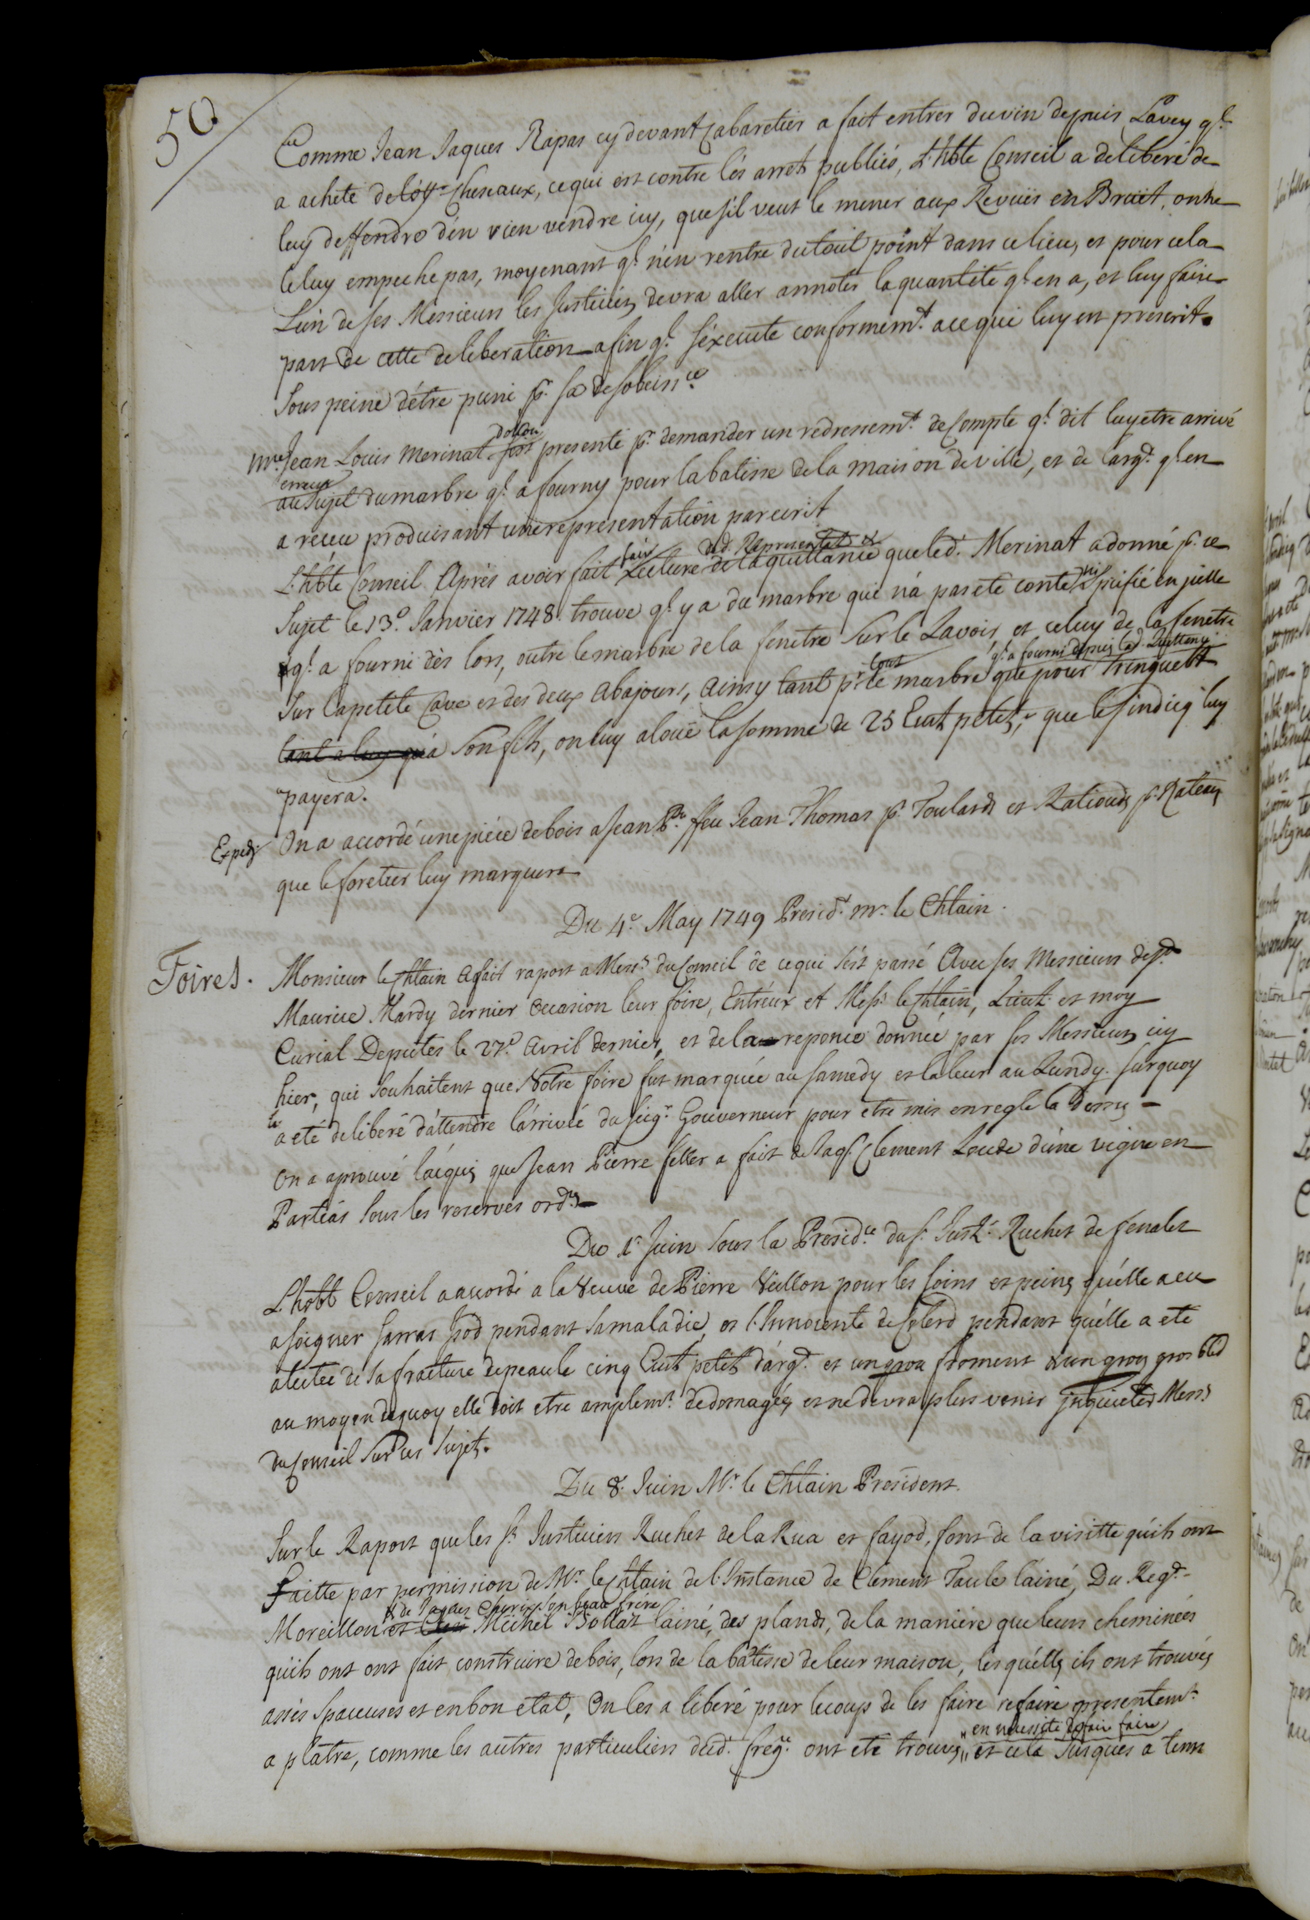 50
Comme Jean Jaques Rapas cy devant Cabaretier a fait entrer du vin depuis Lavey ql.
a acheté de Cheseaux, ce qui est contre lés arrets publiés, L'hble Conseil a deliberé de
luy deffendre d'en rien vendre icy, que s'il veut le mener aux Revuës en Bruët, on ne
le luy empeche pas, moyenant ql. n'en rentre du tout point dans ce lieu, et pour cela
L'un de ses Messieurs les Justiciers devra aller annoter la quantité ql. en a, et luy faire
part de cette deliberation afin ql. s'éxecute conformemt. a ce qui luy est prescrit.
Sous peine d'étre puni pr. sa desobeisce.
Mre. Jean Louis Merinat s'est presenté pr. demander un redressemt. de Compte ql. dit luy etre arrivé
erreur
au sujet du marbre ql. a fourny pour la batisse de la maison de ville, et de l'argt. ql. en
a receu produisant une representation par ecrit
L'hble Conseil Aprés avoir fait faire Lecture dud. Represent. et de la quittance que led. Merinat a donné pr. ce
Sujet le 13e. Janvier 1748. trouve ql. y a du marbre qui n'a pas eté conté ni spécifié en icelle
ql. a fourni dès lors, outre le marbre de la fenetre sur le Lavoir, et celuy de la fenetre
ql. a fourni depuis lad. quittance
Sur la petite Cave et des deux abajours, Ainsy tant pr. tout le marbre que pour Tringuelt
tant a luy qu'à son fils, on luy aloüe la somme de 25 Ecus petits, que le sindicq luy
payera.
Exped. On a accordé une piéce de bois a Jean Pre. ffeu Jean Thomas pr. Toulards et Ratiouds pr. Rateau
que le foretier luy marquera
Du 4e. May 1749 Presidt. Mr. le Chlain.
Foires. Monsieur le Chlain a fait raport a Messrs. du Conseil de ce qui s'est passé Avec ses Messieurs de St.
Maurice Mardy dernier occasion leur foire, Entr'eux et Messrs. le Chlain, Lieut. et moy
Curial Deputés le 27e. Avril dernier, et de la reponce donnée par ses Messieurs icy
hier, qui souhaitent que Nôtre foire fut marquée au samedy et la leur au Lundy. surquoy
a eté deliberé d'attendre l'arrivée du seigr. Gouverneur pour etre mis en regle la Dessus
On a aprouvé l'aequis que Jean Pierre feller a fait de Jaqs. Clement Loude d'une vigne en
Partiás sous les reserves ordres.
Du 1r. Juin sous la Presidce. du Sr. Justr. Ruchet de fenalet
L'hoble Conseil a accordé a la Veuve de Pierre Veillon pour les soins et peines qu'elle a eu
a soigner Sarras Jsod pendant sa maladie, et l'Innocente de pendant qu'elle a eté
alectée de sa fracture d'epeaule cinq Ecus petits d'argt. et un gros froment & un gros gros bled
au moyen dequoy elle doit etre amplemt. dedomagée, et ne devra plus venir inquieter Messrs.
du Conseil sur ces sujets.
Du 8. Juin Mr. le Chlain President.
Sur le Raport que les Srs. Justiciers Ruchet de la Rua et fayod, font de la visitte qu'ils ont
Faitte par permission de Mr. le Chlain de l'Instance de Clement Taule l'ainé, Du Regt.
& de Jaques Cherix son beau frere
Moreillon et Michel Bollaz l'ainé, des plands, de la maniére que leurs cheminées
qu'ils ont ont fait construire de bois, lors de la batisse de leur maison, lesquélles ils ont trouvés
assés spacieuses et en bon etat, On les a liberé pour le coup de les faire refaire presentemt.
en necessité de faire faire
a plâtre, comme les autres particuliers dud. ont eté trouvés et cela jusques a tems